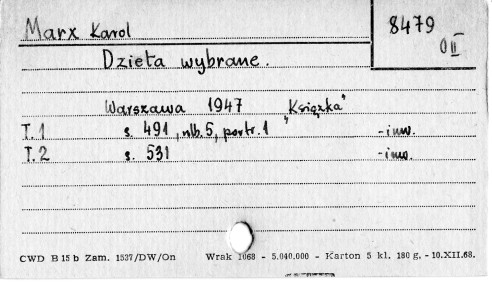 Marx Karol
8479
O II
Dzieła wybrane.
Warszawa 1947 "Książka"
T. 1 s. 491, nlb. 5, portr. 1 - inw.
T. 2 s. 531 - inw.
CWD B 15 b Zam. 1537/DW/On Wrak 1068 - 5.040.000 - Karton 5 kl. 180 g. - 10.XII.68.